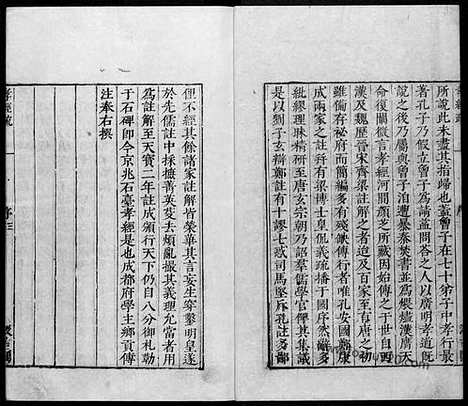 所說此未盡其指歸也蓋曾子在七十弟子中孝行最
著孔子乃假立曾子爲請益問答之人以廣明孝道既
說之後乃屬與曾子洎遭暴秦焚書並爲煨燼漢膺天
命復闡微言孝經河間顏芝所藏因始傳之于世自西
漢及魏歷晉宋齊梁註解之者迨及百家至有唐之初
雖備存祕府而簡編多有殘缺傳行者唯孔安國鄭康
成兩家之註并有梁博士皇侃義疏播于國序然辭多
紕繆理昧精研至唐玄宗朝乃詔羣儒學官俾其集議
是以劉子玄辯鄭註有十謬七惑司馬堅斥孔註多鄙
俚不經其餘諸家註解皆榮華其言妄生穿鑿明皇遂
於先儒註中採摭菁英芟去煩亂撮其義理允當者用
爲註解至天寶二年註成頒行天下仍自八分御札勒
于石碑卽今京兆石臺孝經是也成都府學主鄉貢傳
注奉右撰
孝經疏 序 三